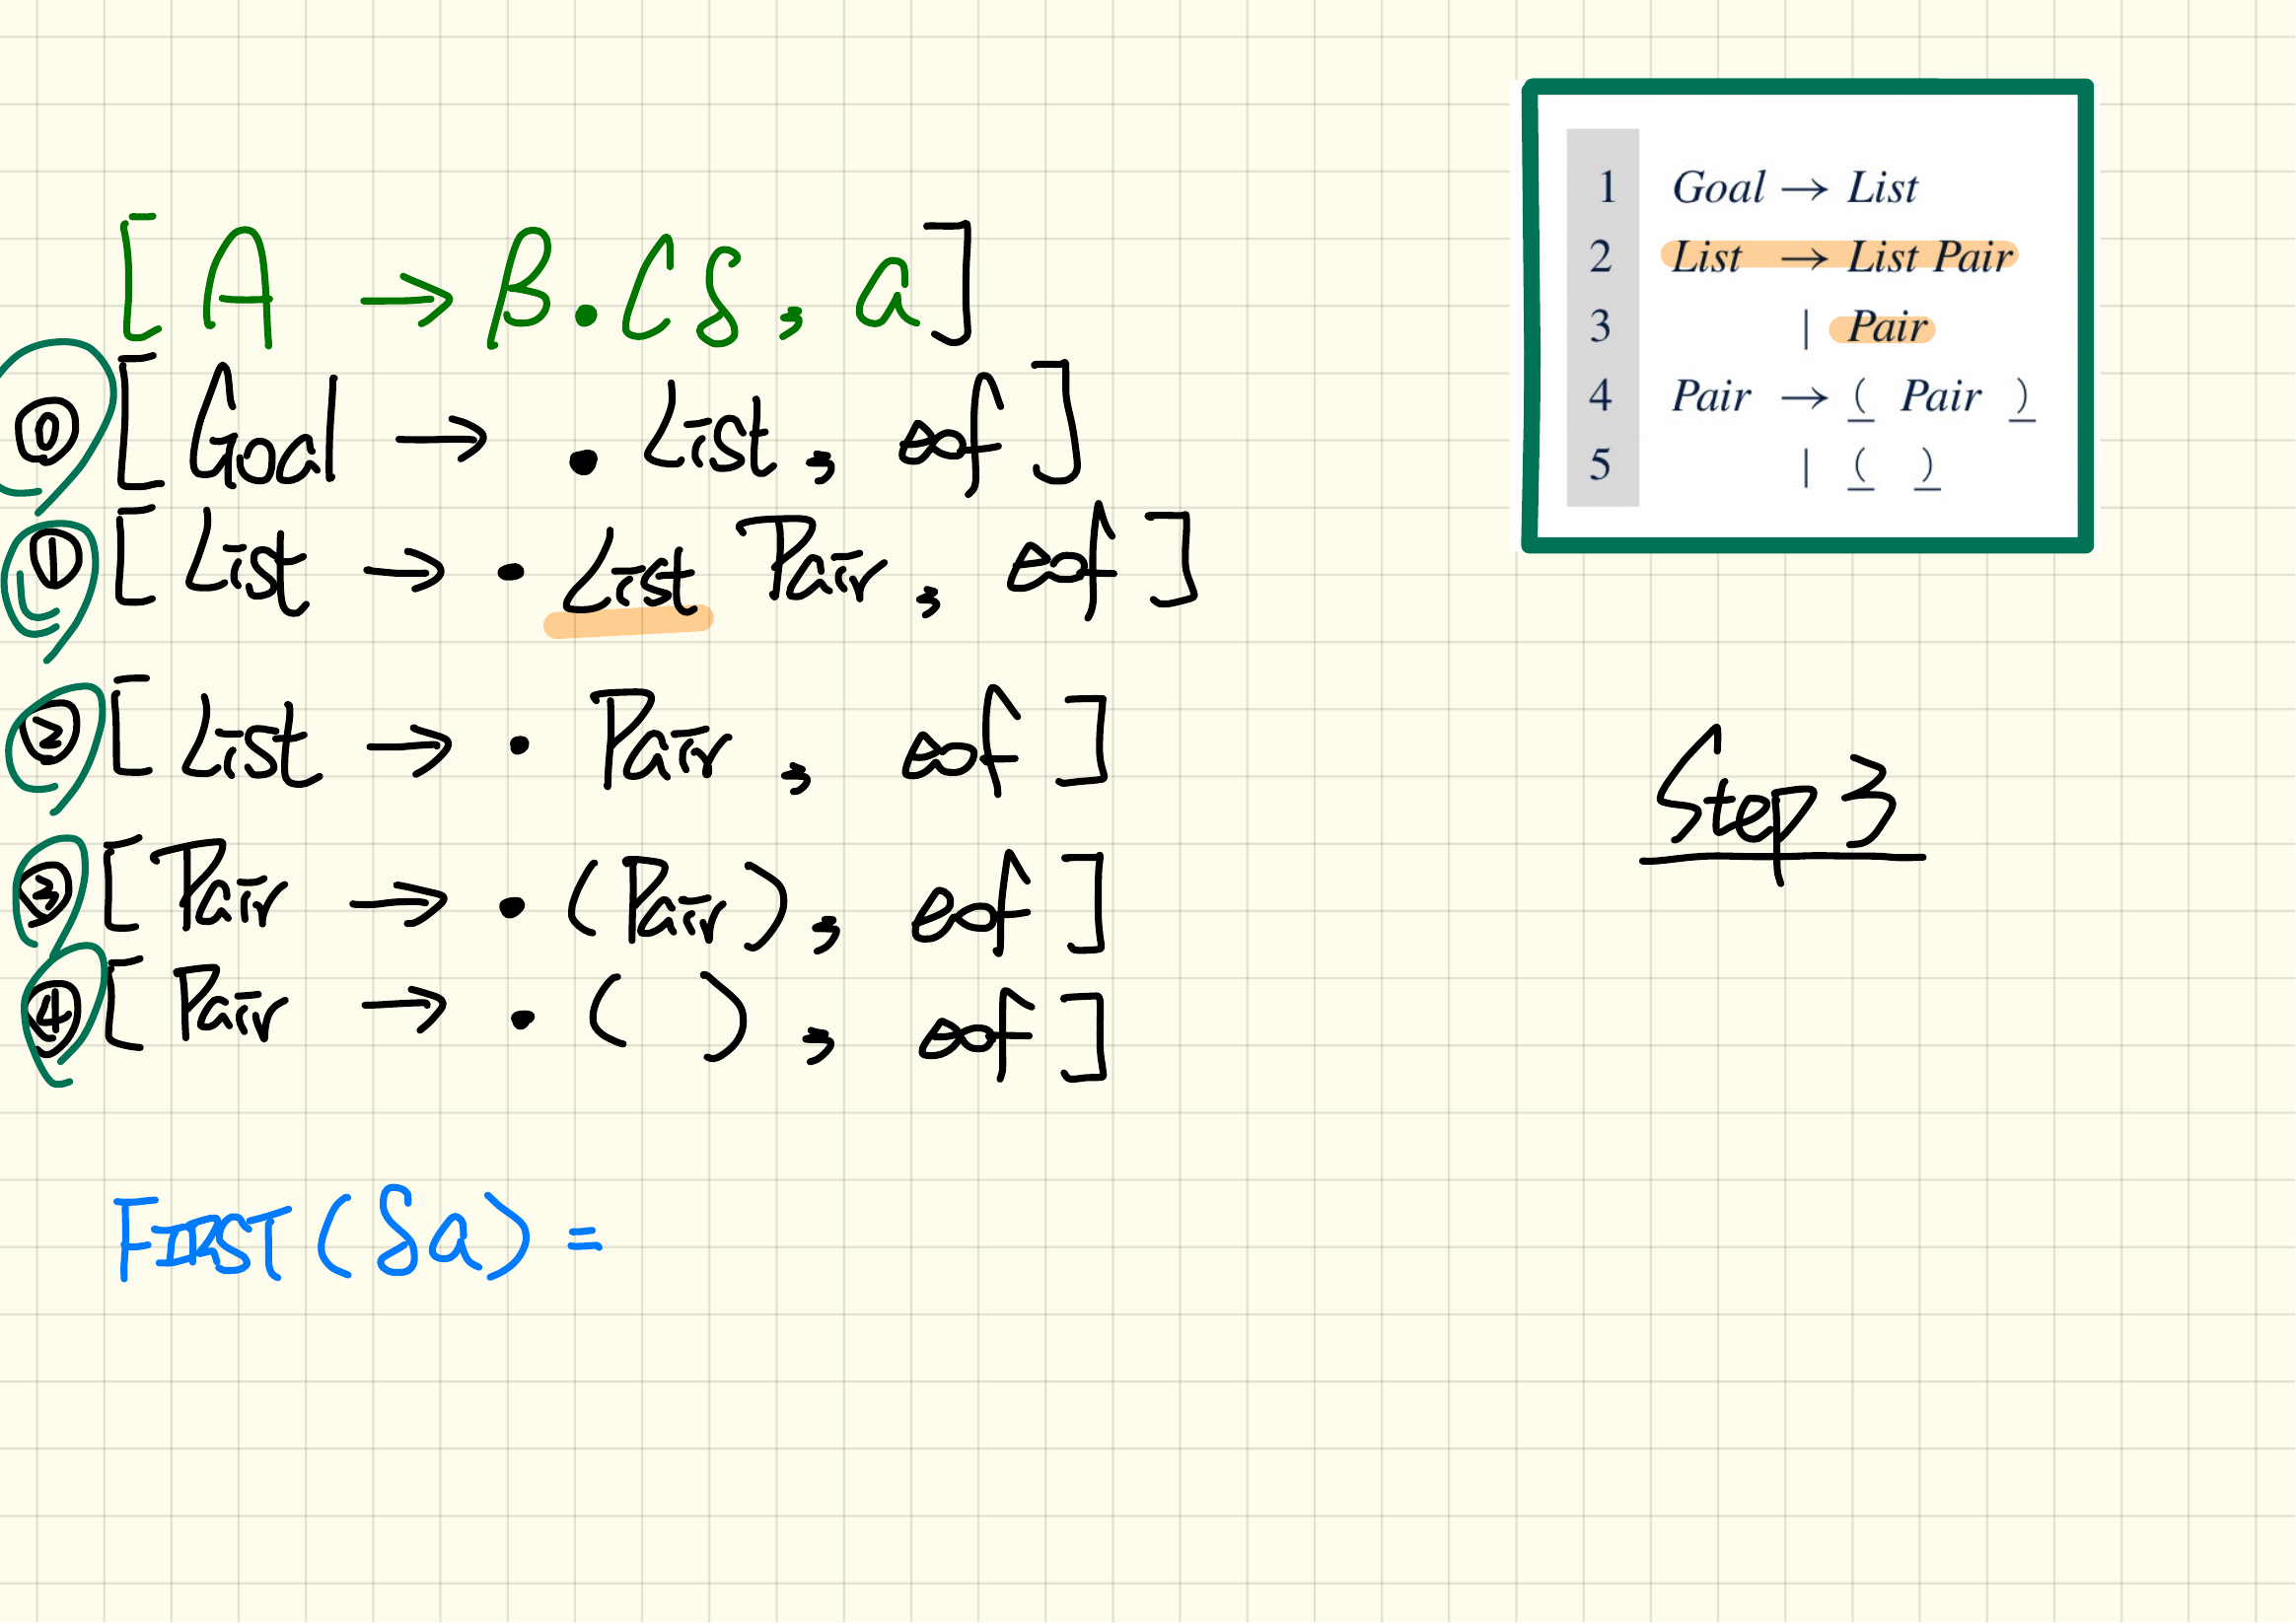 [ A → β • C δ , a ]
⓪ [ Goal → • List , eof ]
① [ List → • List Pair , eof ]
② [ List → • Pair , eof ]
③ [ Pair → • ( Pair ) , eof ]
④ [ Pair → • ( ) , eof ]
FIRST ( δ a ) =
1 Goal → List
2 List → List Pair
3 | Pair
4 Pair → ( Pair )
5 | ( )
Step 3